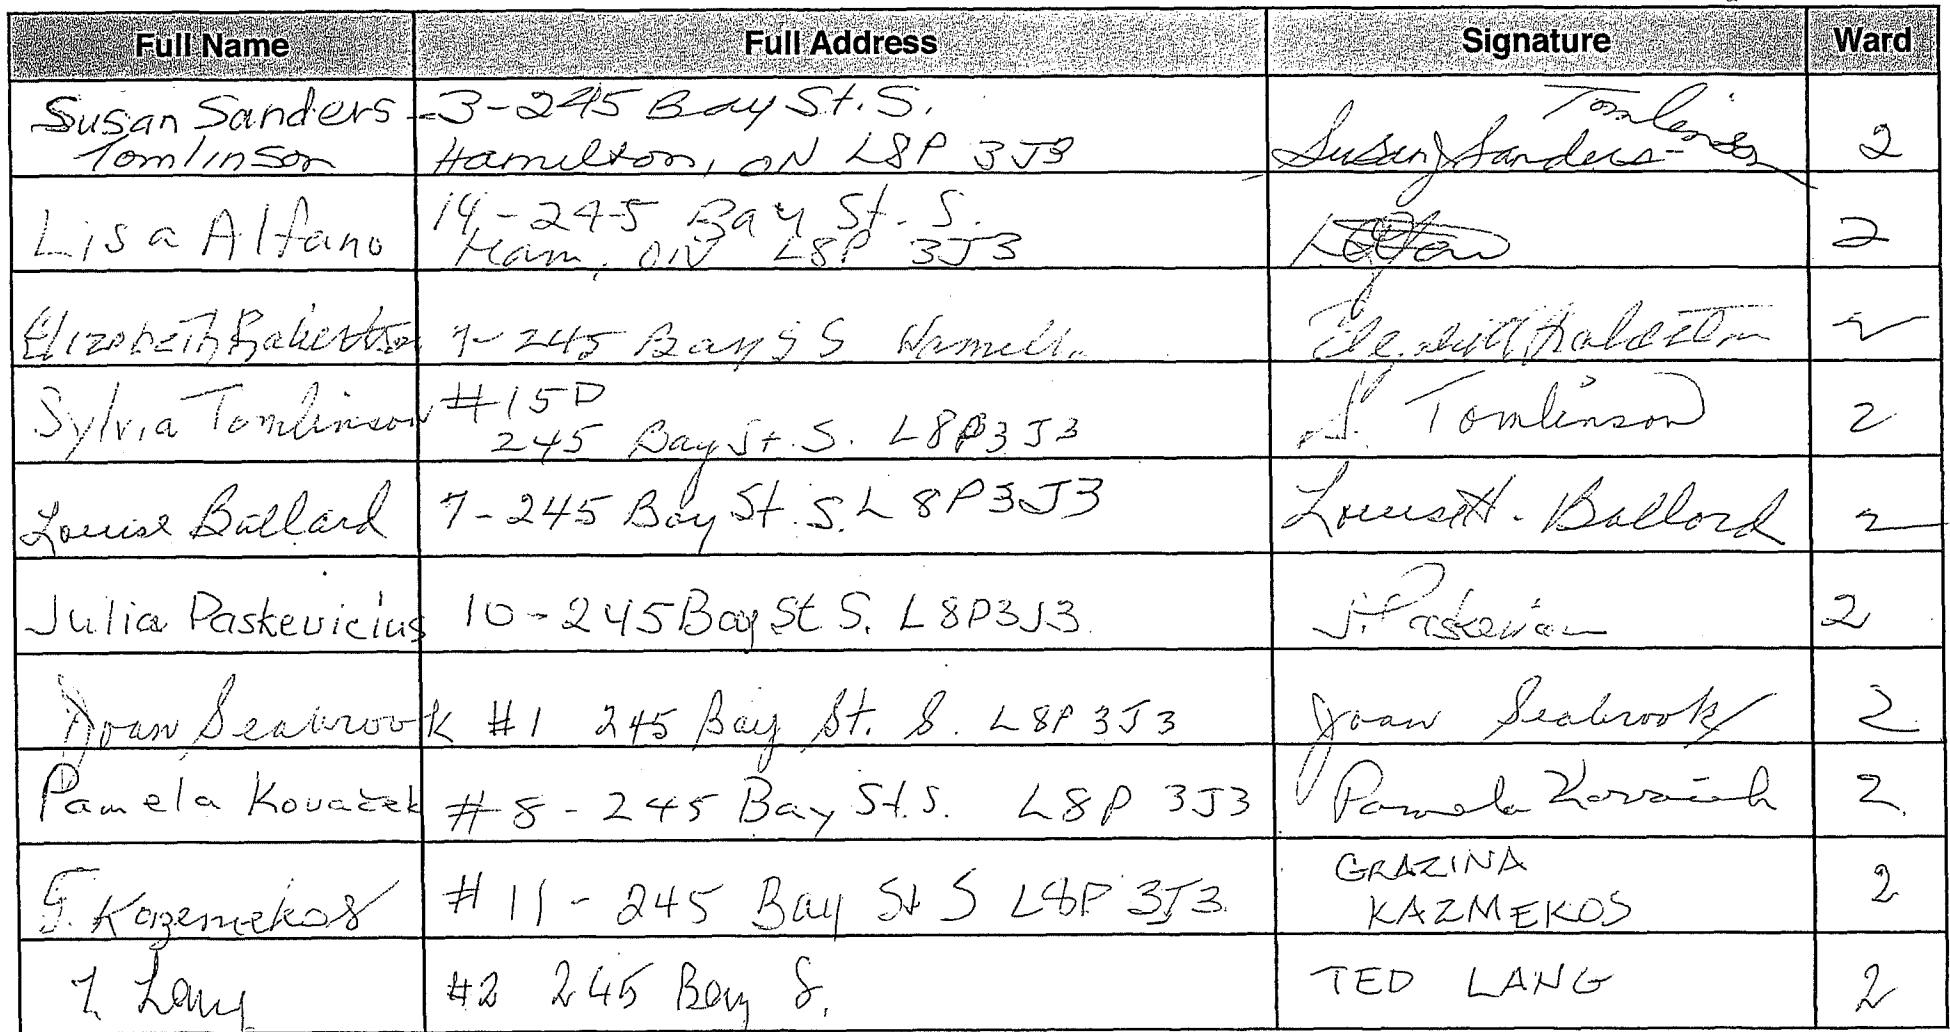 Full Name Full Address Signature Ward
Susan Sanders - 3-245 Bay St. S. Tomlinson
Tomlinson Hamilton, ON L8P 3J3 Susan J Sanders- 2
Lisa Alfano 14-245 Bay St. S. 2
Ham, ON L8P 3J3
Elizabeth Robertson 7-245 Bay S S 2
Sylvia Tomlinson #15D S. Tomlinson 2
245 Bay St. S. L8P3J3
Louise Ballard 7-245 Bay St. S. L8P3J3 Louise H. Ballard 2
Julia Paskevicius 10-245 Bay St S. L8P3J3 J. 2
Joan Seabrook #1 245 Bay St. S. L8P 3J3 Joan Seabrook 2
Pamela Kovaček #8-245 Bay St. S. L8P 3J3 Pamela Kovaček 2
G. Kazemekos #11-245 Bay St S L8P 3J3 GRAZINA
KAZMEKOS 2
T. Lang #2 245 Bay S. TED LANG 2